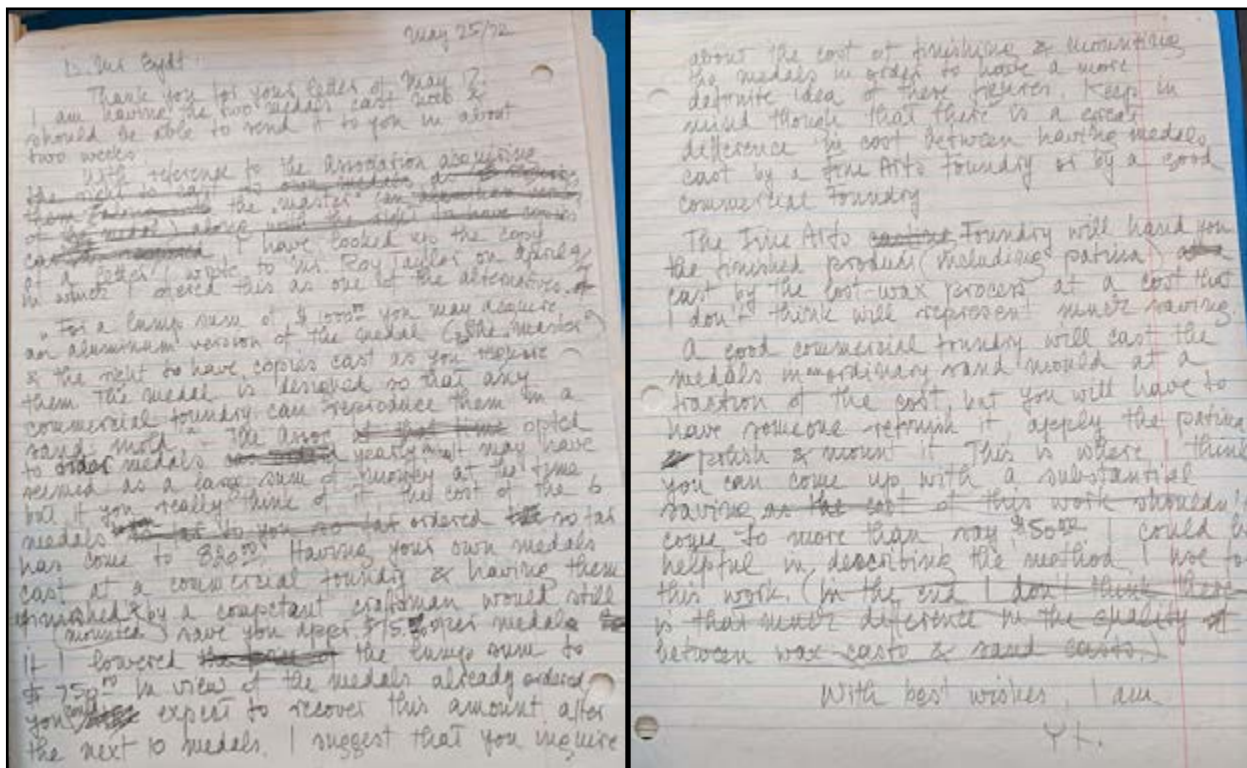 May 25/72
D. Mr Bydt.
Thank you for your letter of May 17.
I am having the two medals cast now &
should be able to send it to you in about
two weeks.
With reference to the association acquiring
the right to cast its own medals
them the "master"
of the medal) along with the right to have copies
I have looked up the copy
of a letter I wrote to Mr. Roy Taylor on April 9/
in which I offered this as one of the alternatives.
"For a lump sum of $1000.00 you may acquire
an aluminum version of the medal (the "master")
& the right to have copies cast as you require
them. The medal is designed so that any
commercial foundry can reproduce them in a
sand mold." The Assoc at that time opted
to order medals yearly it may have
seemed as a large sum of money at the time
but if you really think of it the cost of the 6
medals so far to you so far ordered so far
has come to 820.00. Having your own medals
cast at a commercial foundry & having them
finished & by a competant craftsman would still
(mounted) save you appr. $75.00 per medal
if I lowered the price of the lump sum to
$750.00 in view of the medals already ordered
you could expect to recover this amount after
the next 10 medals. I suggest that you inquire
about the cost of finishing & mounting
the medals in order to have a more
definite idea of these figures. Keep in
mind though that there is a great
difference in cost between having medals
cast by a Fine Arts Foundry or by a good
commercial Foundry
The Fine Arts casting Foundry will hand you
the finished product (including patina)
cast by the lost-wax process at a cost that
I don't think will represent much saving.
A good commercial foundry will cast the
medals in ordinary sand mould at a
fraction of the cost, but you will have to
have someone refinish it apply the patina
polish & mount it This is where I think
you can come up with a substantial
saving as the cost of this work shouldn't
come to more than say $50.00. I could be
helpful in describing the method I use for
this work. (In the end I don't think there
is that much difference in the quality of
between wax casts & sand casts.)
With best wishes, I am
Yt.